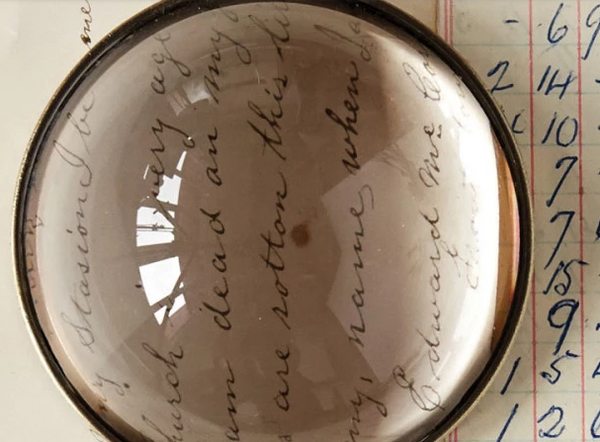 me
Stasion I be
hurch very age
am dead an my
are rotton this
my, name, when
Edward Mc
- 6 9
2 14 -
10
7
7
15
9
1 5
1 2 6